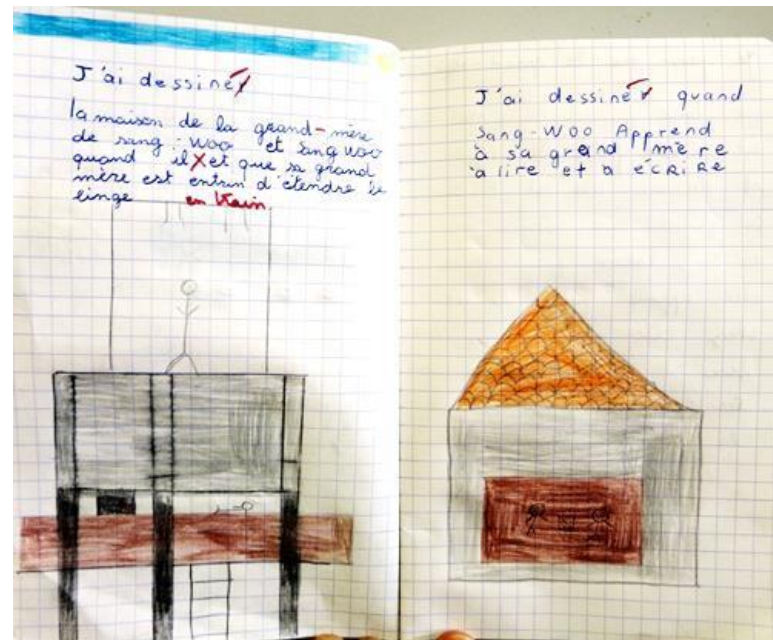 J'ai dessiner
la maison de la grand-mère
de sang-woo et sang woo
quand il et que sa grand
mère est entrin d'étendre le
linge en train
J'ai dessiner quand
Sang-Woo Apprend
à sa grand mère
à lire et à éCRiRe